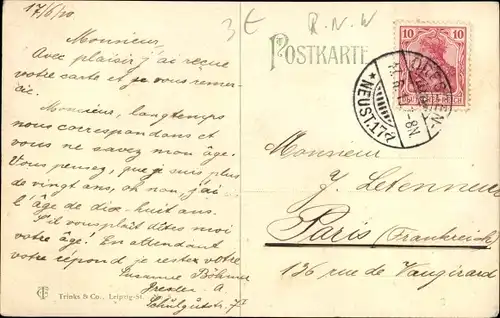 17/6/20
Monsieur,
Avec plaisir j'ai reçue
votre carte et je vous remer-
cie.
Monsieur, longtemps
nous correspondons et
vous ne savez mon âge.
Vous pensez, que je suis plus
de vingt ans, oh non, j'ai
l'âge de dix-huit ans.
S'il vous plaît dîtes moi
votre âge! En attendant
votre répond je reste votre
Susanne Böhmer
Dresden A.
T Trinks & Co., Leipzig-St.
3 € R. N. W
POSTKARTE
10 10
DEUTSCHES REICH
DRESDEN-
* NEUST. (ALTST.)
-8N.
Monsieur
J. Letenneur
Paris (Frankreich)
136 rue de Vaugirard